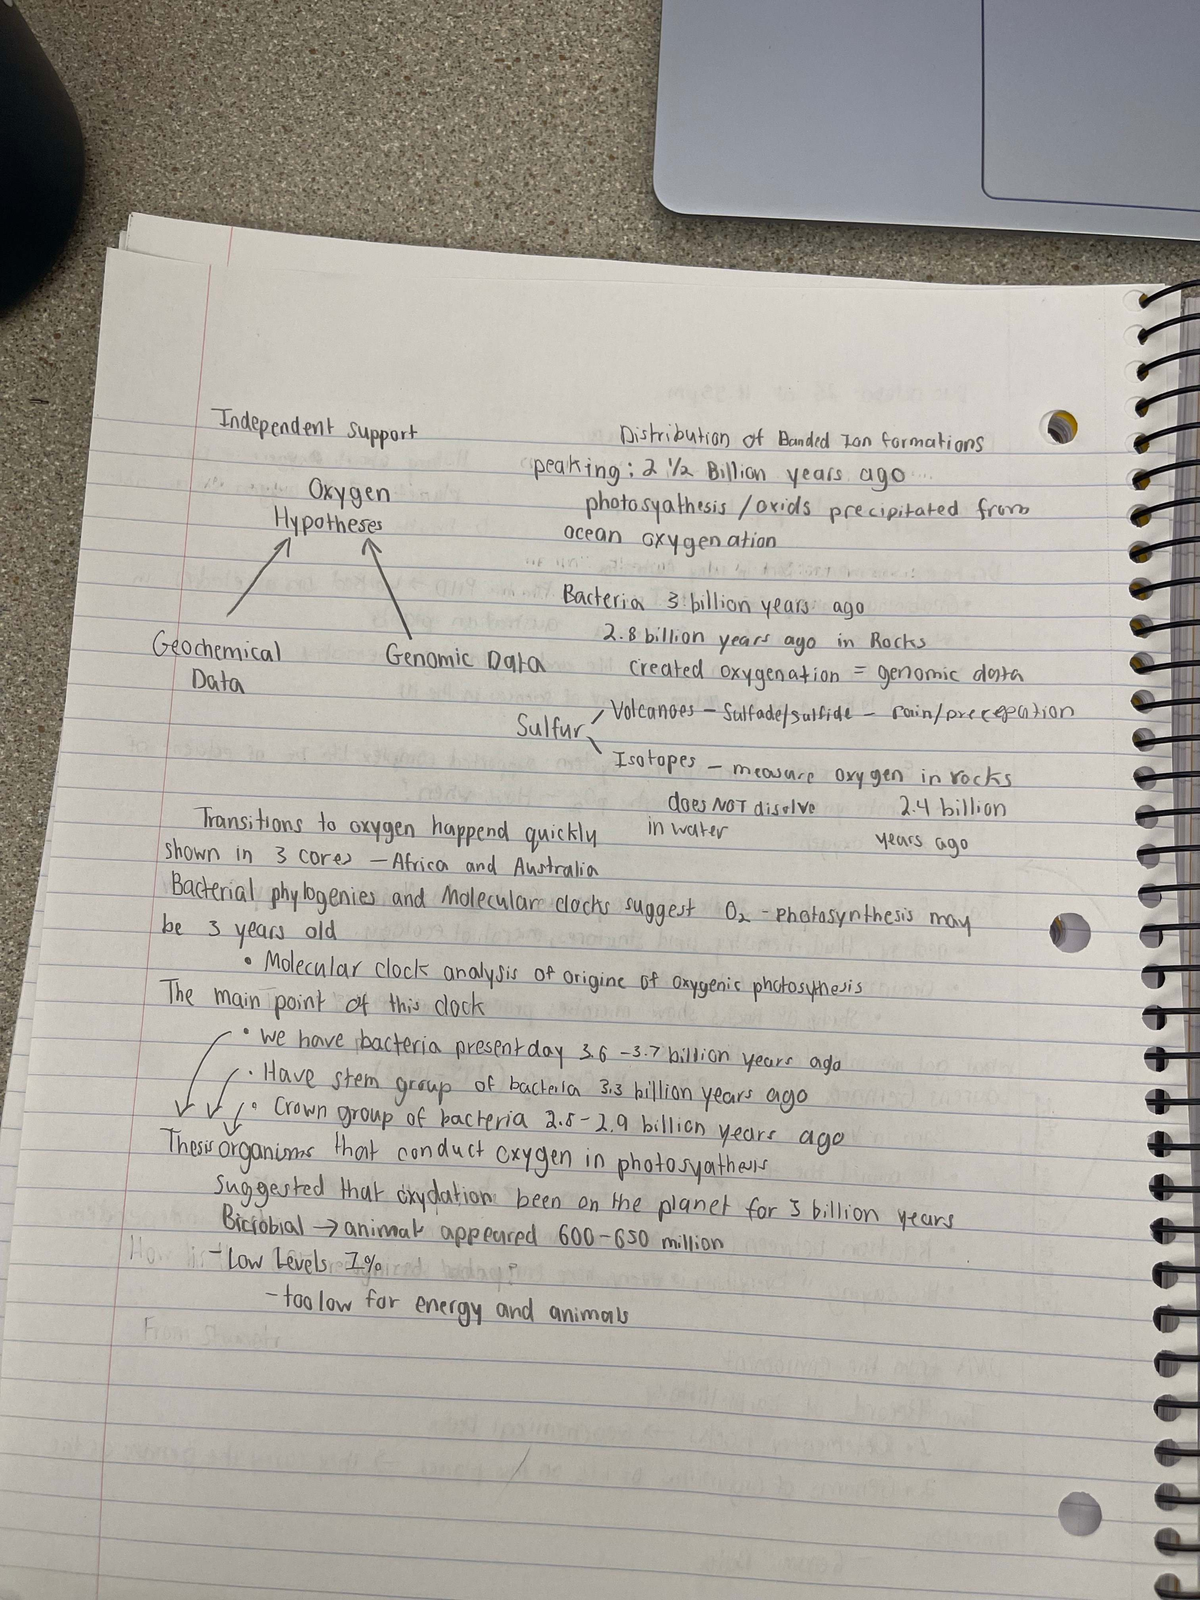 Independent support
Oxygen
Hypotheses
Geochemical
Data
Genomic Data
Distribution of Banded Ion formations
peaking: 2 1/2 Billion years ago
photosyathesis / oxids precipitated from
ocean oxygenation
Bacteria 3 billion years ago
2.8 billion years ago in Rocks
created oxygenation = genomic data
Sulfur
Volcanoes - Sulfade/sulfide - rain/precepation
Isotopes - measure oxygen in rocks
does NOT disolve
in water
2.4 billion
years ago
Transitions to oxygen happend quickly
shown in 3 cores - Africa and Australia
Bacterial phylogenies and Molecular clocks suggest O2 - photosynthesis may
be 3 years old
• Molecular clock analysis of origine of oxygenic photosythesis
The main point of this clock
• we have bacteria present day 3.6 - 3.7 billion years ago
• Have stem group of bacteria 3.3 billion years ago
• Crown group of bacteria 2.8 - 2.9 billion years ago
Thesis organisms that conduct oxygen in photosyathesis
suggested that oxydation been on the planet for 3 billion years
→ animals appeared 600-650 million
- Low Levels 1%
- too low for energy and animals